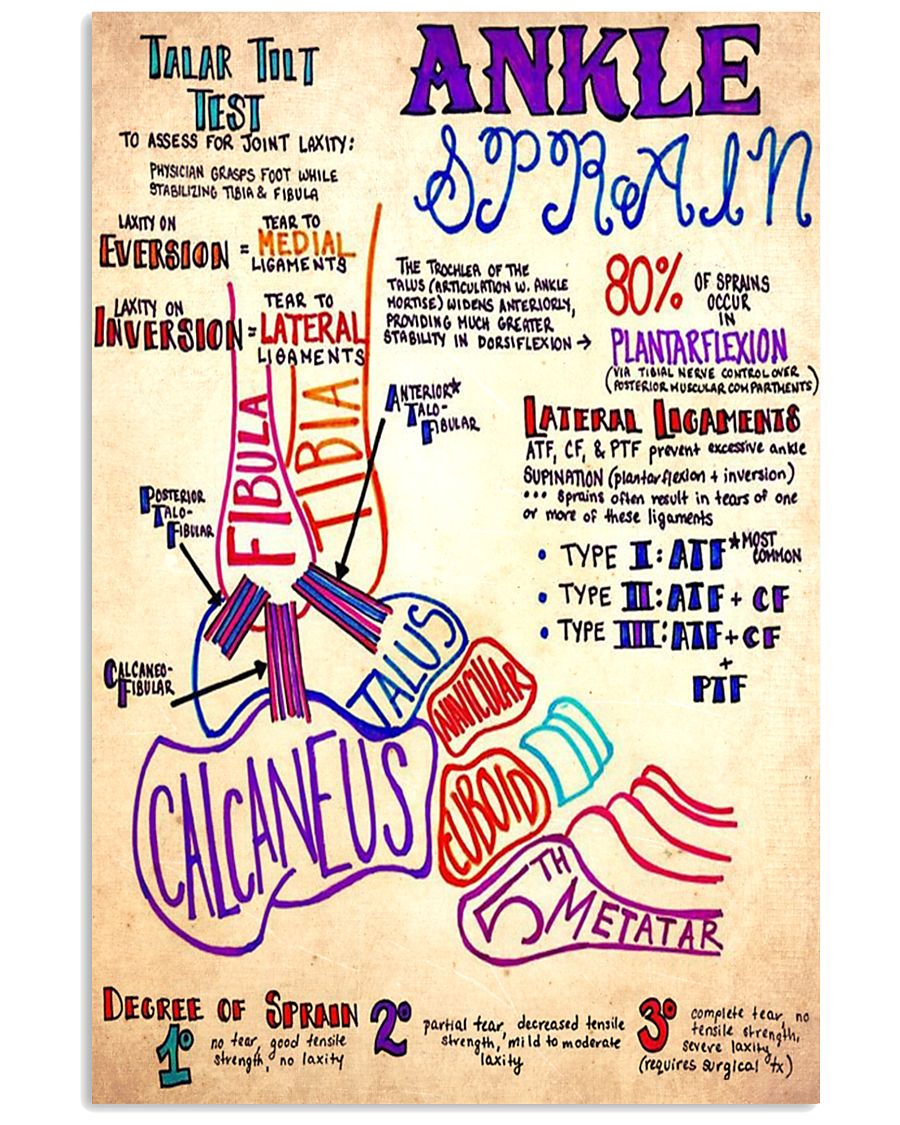 TALAR TILT
TEST
TO ASSESS FOR JOINT LAXITY:
PHYSICIAN GRASPS FOOT WHILE
STABILIZING TIBIA & FIBULA
LAXITY ON
EVERSION =
TEAR TO
MEDIAL
LIGAMENTS
LAXITY ON
INVERSION =
TEAR TO
LATERAL
LIGAMENTS
ANKLE
SPRAIN
THE TROCHLER OF THE
TALUS (ARTICULATION W. ANKLE
MORTISE) WIDENS ANTERIORLY,
PROVIDING MUCH GREATER
STABILITY IN DORSIFLEXION →
80% OF SPRAINS
OCCUR
IN
PLANTARFLEXION
(VIA TIBIAL NERVE CONTROL OVER
POSTERIOR MUSCULAR COMPARTMENTS)
LATERAL LIGAMENTS
ATF, CF, & PTF prevent excessive ankle
SUPINATION (plantarflexion + inversion)
... sprains often result in tears of one
or more of these ligaments
• TYPE I: ATF *MOST
COMMON
• TYPE II: ATF + CF
• TYPE III: ATF + CF
+
PTF
ANTERIOR*
TALO-
FIBULAR
FIBULA
TIBIA
POSTERIOR
TALO-
FIBULAR
CALCANEO-
FIBULAR
TALUS
NAVICULAR
CALCANEUS
CUBOID
5TH
METATAR
DEGREE OF SPRAIN
1° no tear, good tensile
strength, no laxity
2° partial tear, decreased tensile
strength, mild to moderate
laxity
3° complete tear, no
tensile strength,
severe laxity
(requires surgical tx)